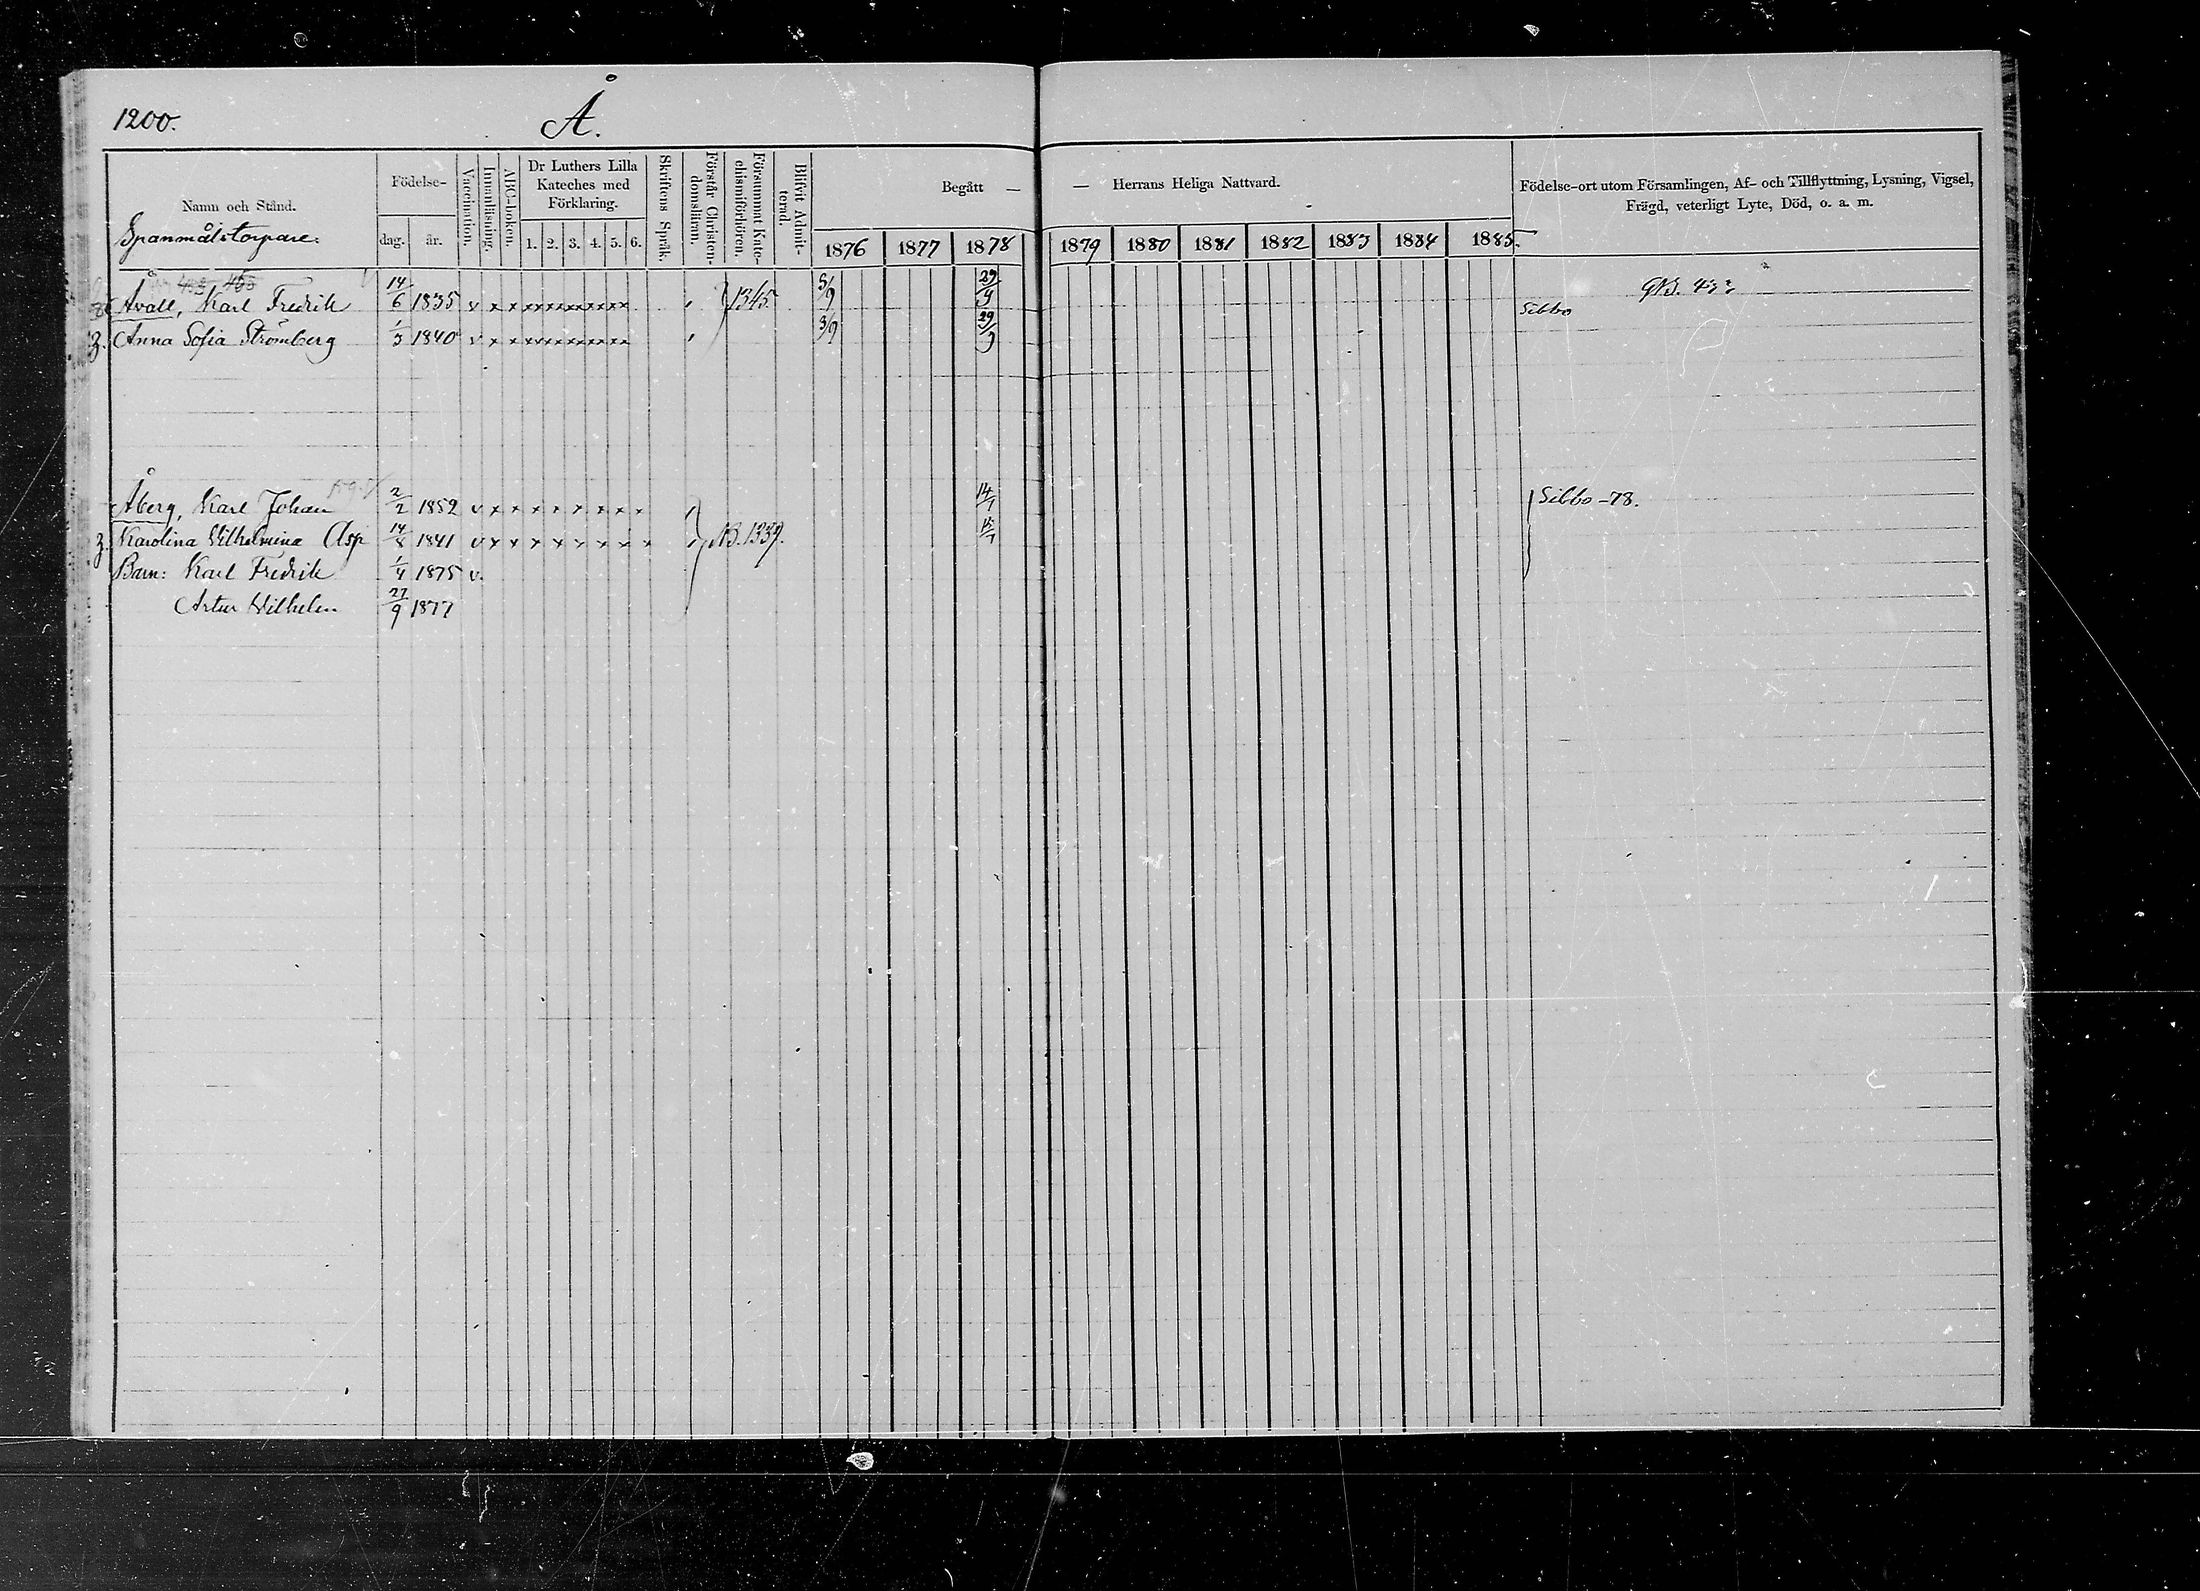 1200.
Å.
Namn och Stånd.
Födelse-
dag.
år.
Vaccination.
Innanläsning.
ABC-boken.
Dr Luthers Lilla
Kateches med
Förklaring.
1. 2. 3. 4. 5. 6.
Skriftens Språk.
Förstår Christen-
domsläran.
Försummat Kate-
chismiförhören.
Blifvit Admit-
terad.
Begått —
— Herrans Heliga Nattvard.
1876 1877 1878 1879 1880 1881 1882 1883 1884 1885.
Födelse-ort utom Församlingen, Af- och Tillflyttning, Lysning, Vigsel,
Frägd, veterligt Lyte, Död, o. a. m.
Spanmålstorpare.
Åvall, Karl Fredrik 14/6 1835 v x x x x x x x x 1345 5/9 29/9 Sibbo
3. Anna Sofia Strömberg 1840 v x x x x x x x x 3/9 29/9
Åberg, Karl Johan 2/2 1852 v x x x x x x x x 14/7 Sibbo -78.
3. Karolina Vilhelmina Asp 14/8 1841 v x x x x x x x x B. 1339.
Barn: Karl Fredrik 1/4 1875 v.
Artur Vilhelm 27/9 1877